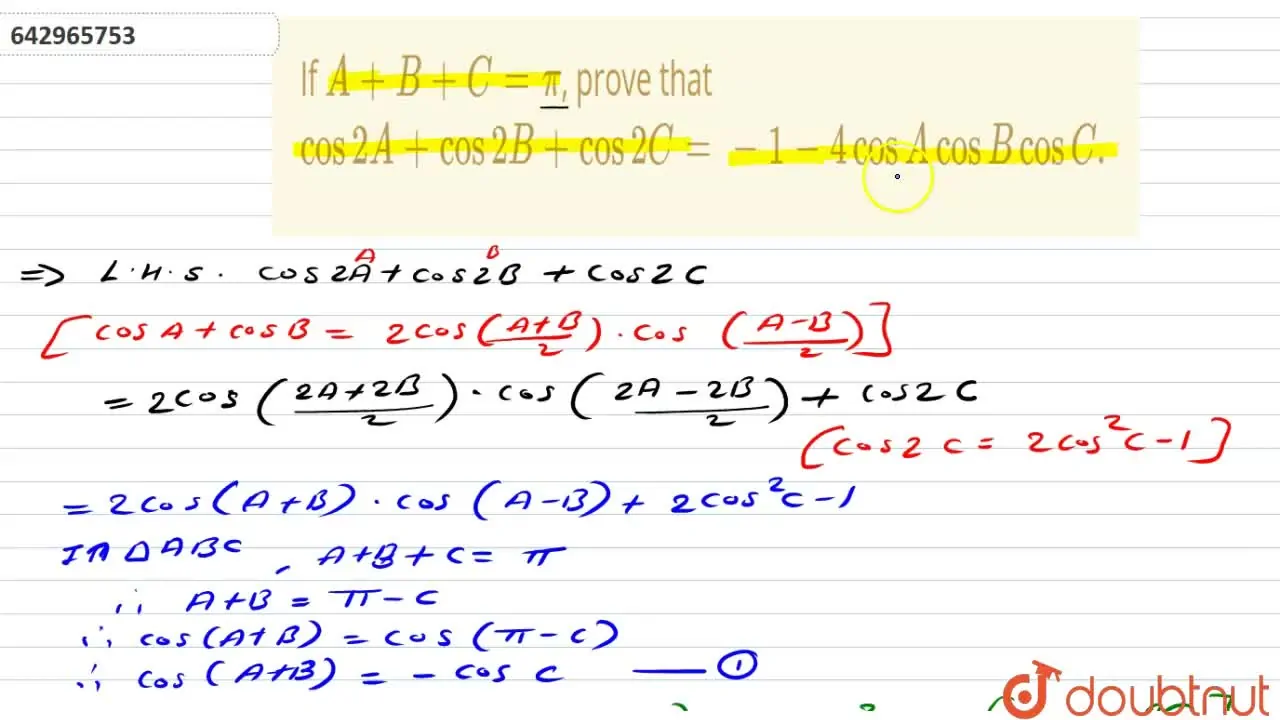 642965753
If A + B + C = π, prove that
cos 2A + cos 2B + cos 2C = −1 − 4 cos A cos B cos C.
A B
=> L.H.S. cos2A + cos2B + cos2C
[cosA + cosB = 2cos((A+B)/2) · cos ((A−B)/2)]
= 2cos ((2A+2B)/2) · cos ((2A−2B)/2) + cos2C
[cos2C = 2cos²C−1]
= 2cos(A+B) · cos (A−B) + 2cos²C−1
In △ABC, A+B+C = π
∴ A+B = π−C
∴ cos(A+B) = cos (π−C)
∴ cos (A+B) = − cos C —— ①
doubtnut